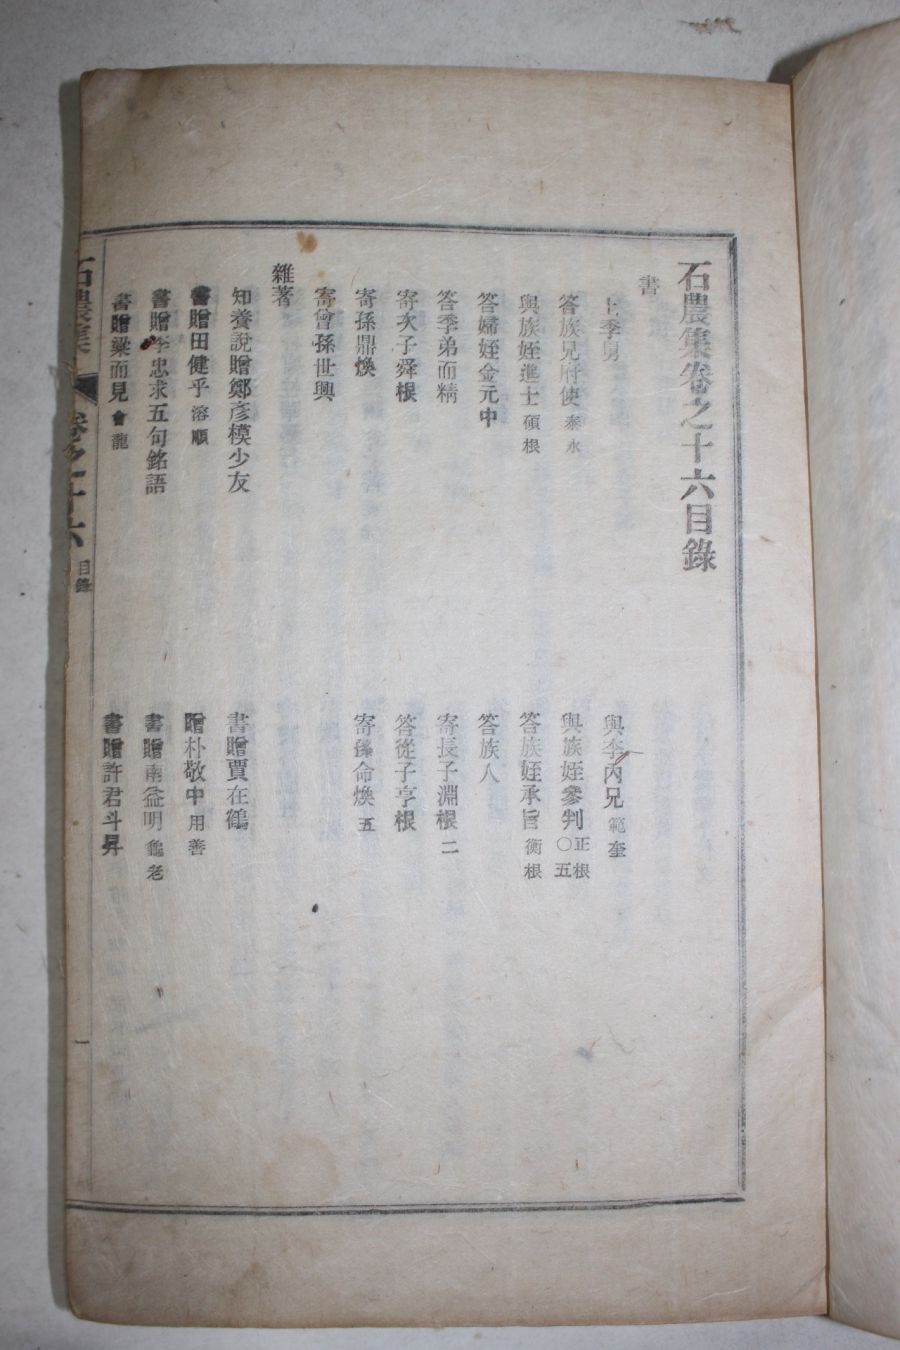 石農集卷之十六目錄
書
上季舅
與李內兄 範奎
答族兄府使 泰永
與族姪參判 正根 〇五
與族姪進士 碩根
答族姪承旨 衡根
答婦姪金元中
答族人
答季弟而精
寄長子淵根 二
寄次子舜根
答從子亨根
寄孫鼎煥
寄孫命煥 五
寄曾孫世興
雜著
知養說贈鄭彦模少友
書贈賈在鶴
書贈田健乎 溶順
贈朴敬中 用善
書贈李忠求五句銘語
書贈南益明 龜老
書贈梁而見 會龍
書贈許君斗昇
石農集 卷之十六 目錄 一